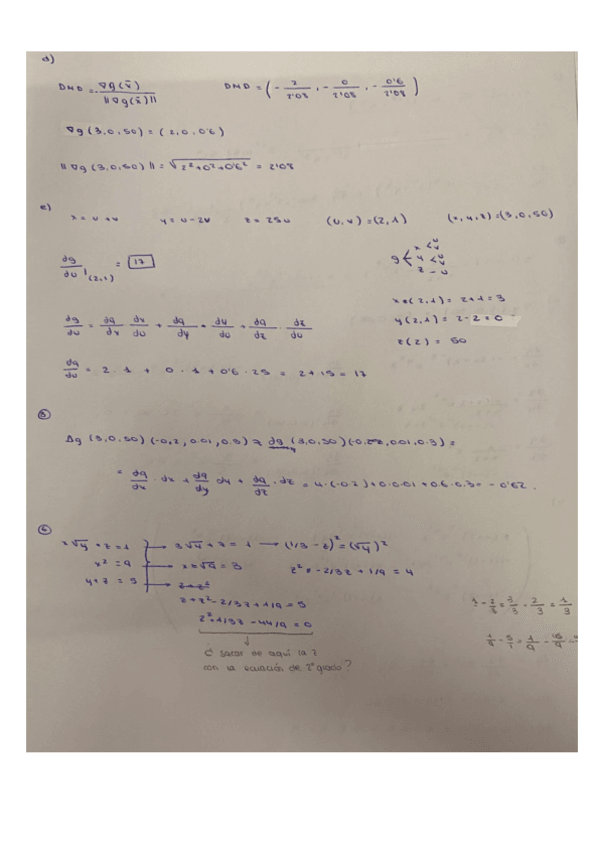 d)
DMD = - ∇g(x̄) / ||∇g(x̄)||     DMD = (- 2/2'08, - 0/2'08, - 0'6/2'08)
∇g (3,0,50) = (2,0,0'6)
||∇g (3,0,50)|| = √(2²+0²+0'6²) = 2'08
e)
x = u+v     y = u-2v     z = 25u     (u,v) = (2,1)     (x,y,z) = (3,0,50)
dg/du |(2,1) = 17
g < x < u v
y < u v
z - u
x(2,1) = 2+1 = 3
y(2,1) = 2-2 = 0
z(2) = 50
dg/du = dg/dx dx/du + dg/dy · dy/du + dg/dz · dz/du
dg/du = 2·1 + 0·1 + 0'6·25 = 2+15 = 17
⑤
Δg (3,0,50) (-0,2, 0.01, 0.3) ≈ dg (3,0,50)
= dg/dx · dx + dg/dy dy + dg/dz · dz = 4·(-0.2)+0·0.01+0.6·0.3 = -0'62.
⑥
x√y + z = 1 → 3√y + z = 1 → (1/3 - z)² = (√y)²
x² = 9 → x = √9 = 3     z² - 2/3z + 1/9 = y
y+z = 5 →
z+z²-2/3z+1/9 = 5
z²+1/3z-44/9 = 0
1 - 2/3 = 3/3 - 2/3 = 1/3
1/9 - 5/1 = 1/9
¿ sacar de aquí la z
con la ecuación de 2º grado?